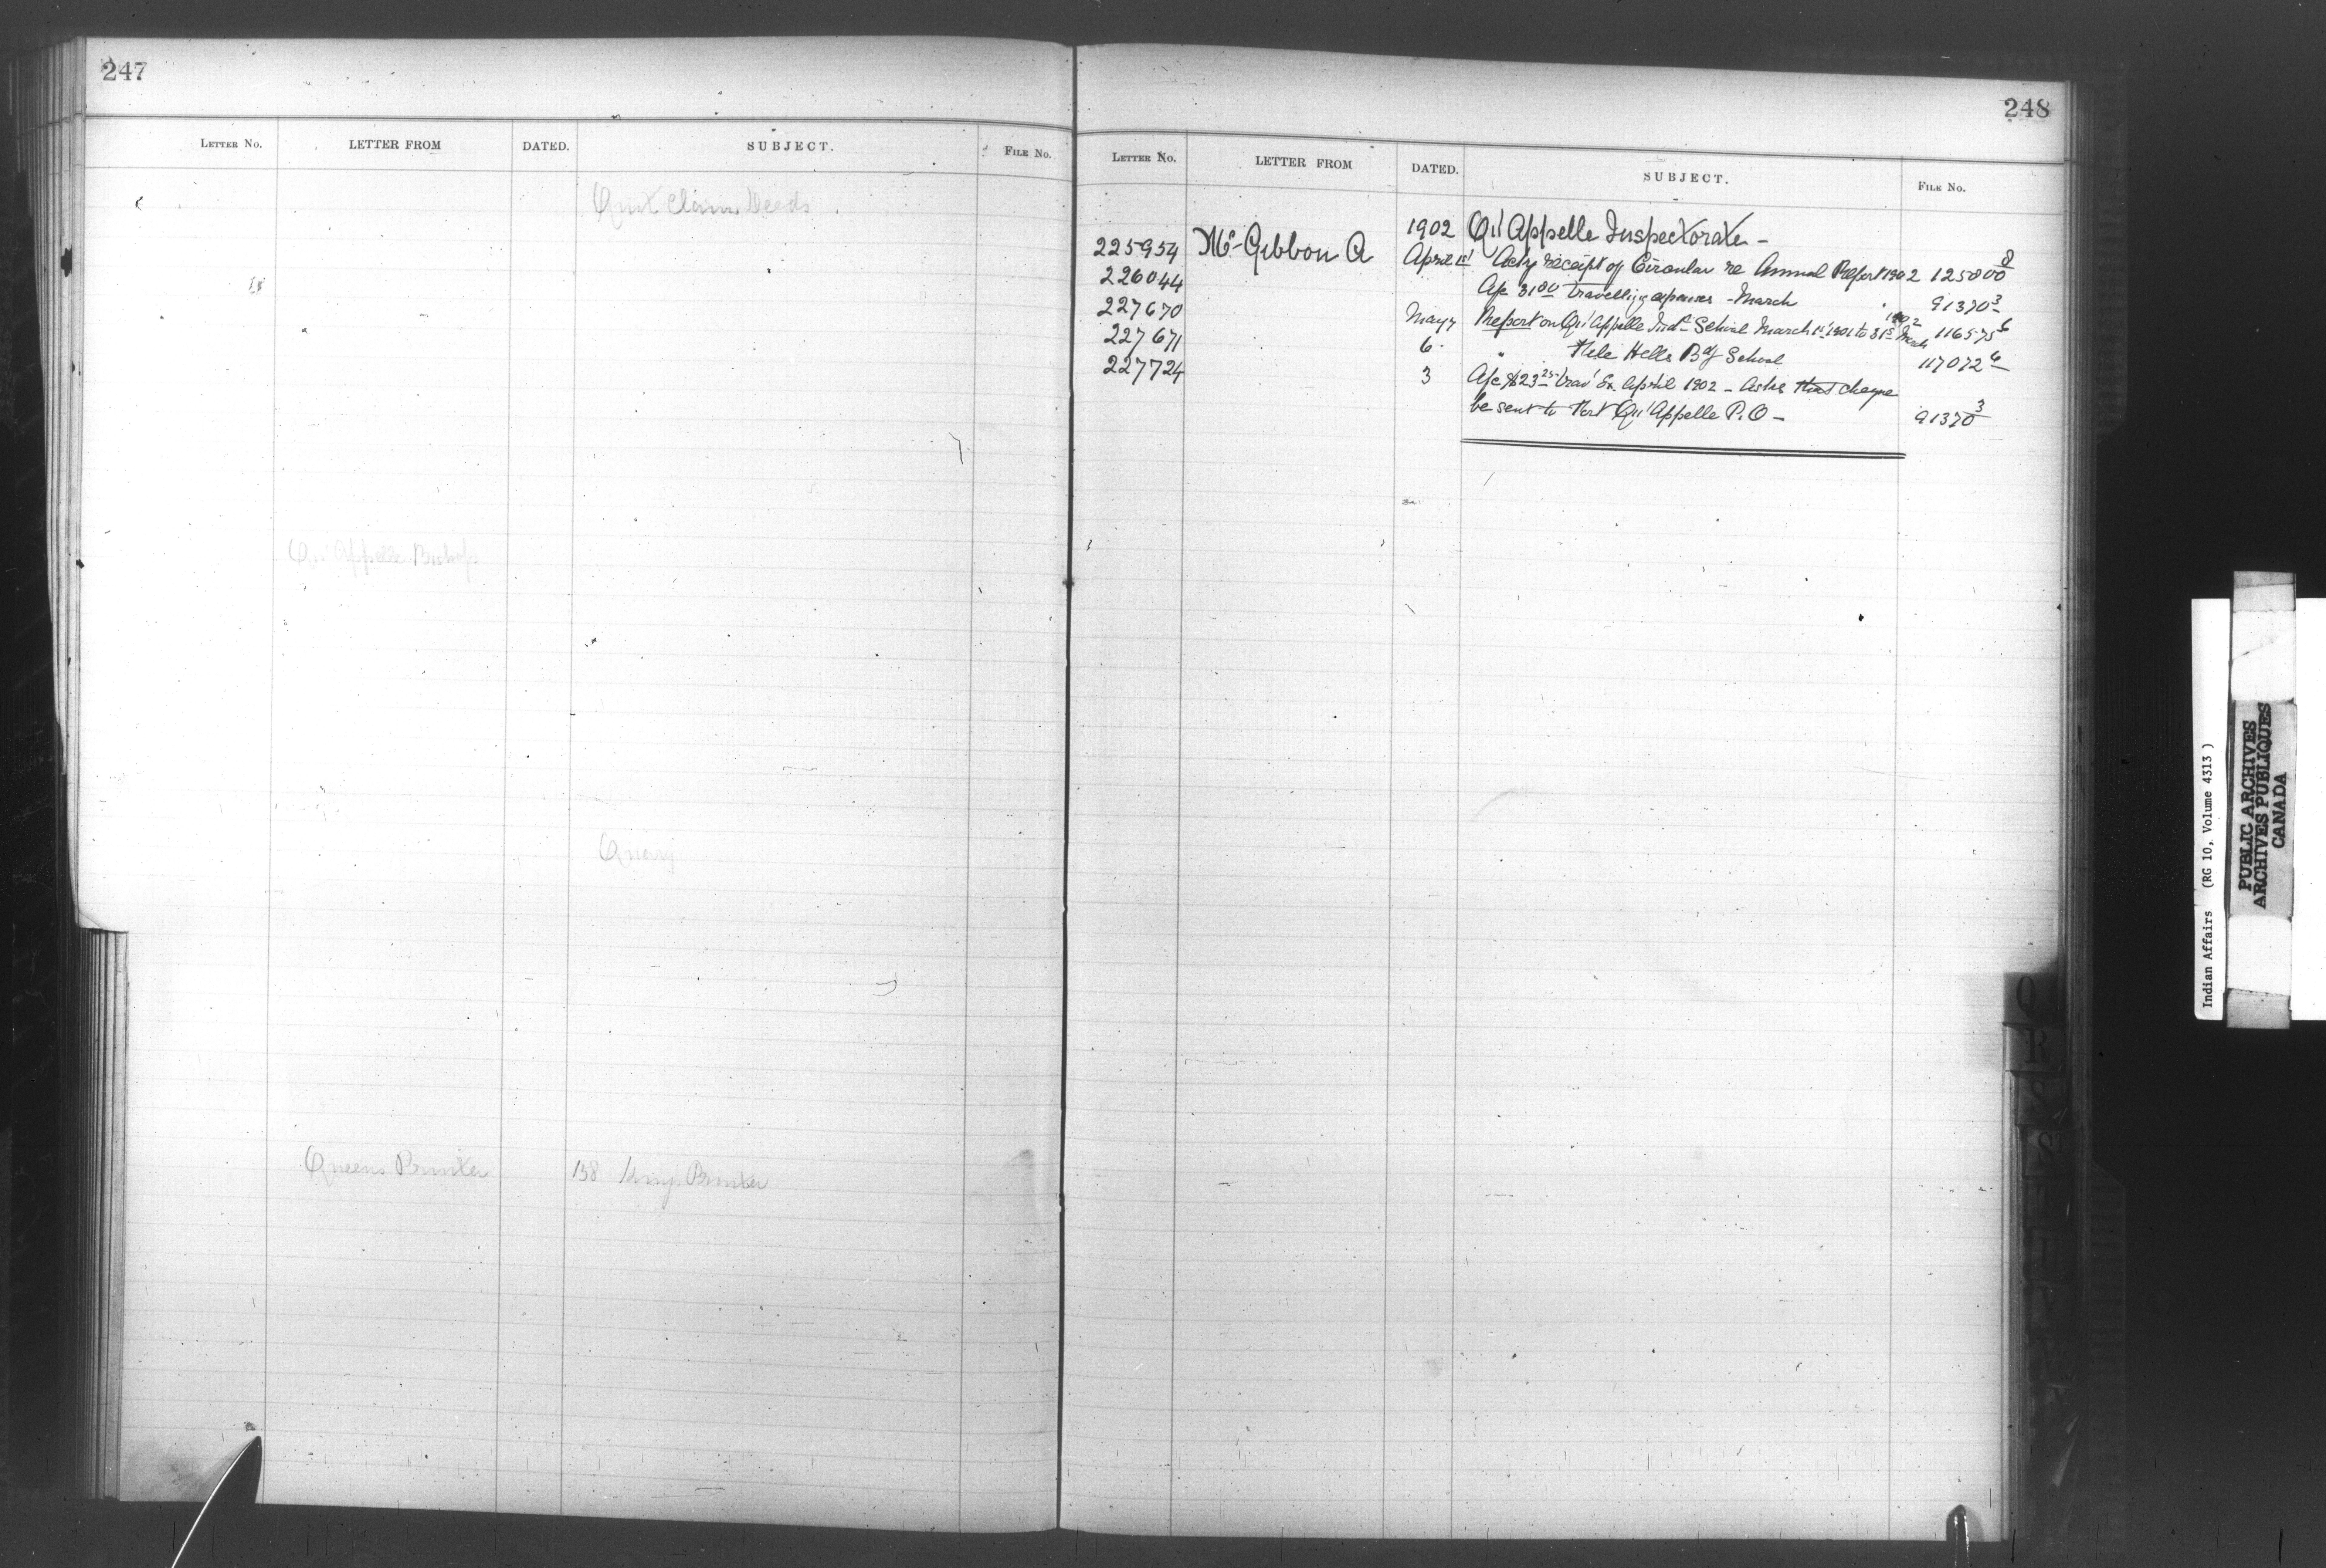 247
LETTER NO. LETTER FROM DATED. SUBJECT. FILE NO.
Quit Claim Deeds
Qu'Appelle Bishop
Quarry
Queens Printer 158 Kings Printer
248
LETTER NO. LETTER FROM DATED. SUBJECT. FILE NO.
1902 Qu'Appelle Inspectorate -
225954 Mc Gibbon A April 1st Ackg receipt of Circular re Annual Report 1902 125000 8
226044 A/c 31 80 travelling expenses - March 91370 3
227670 May 7 Report on Qu'Appelle Ind. School March 1st 1901 to 31st March 1902 116575 6
227671 6 " File Hills Bdg School 117072 6
227724 3 A/c $23 25 trav' Ex. April 1902 - Asks that cheque
be sent to Fort Qu'Appelle P.O - 91370 3
Q
R
S
Indian Affairs (RG 10, Volume 4313)
PUBLIC ARCHIVES
ARCHIVES PUBLIQUES
CANADA